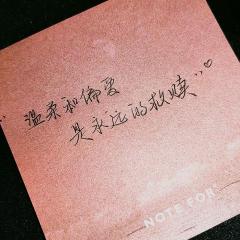 "温柔和偏爱
是永远的救赎"♡
NOTE FOR